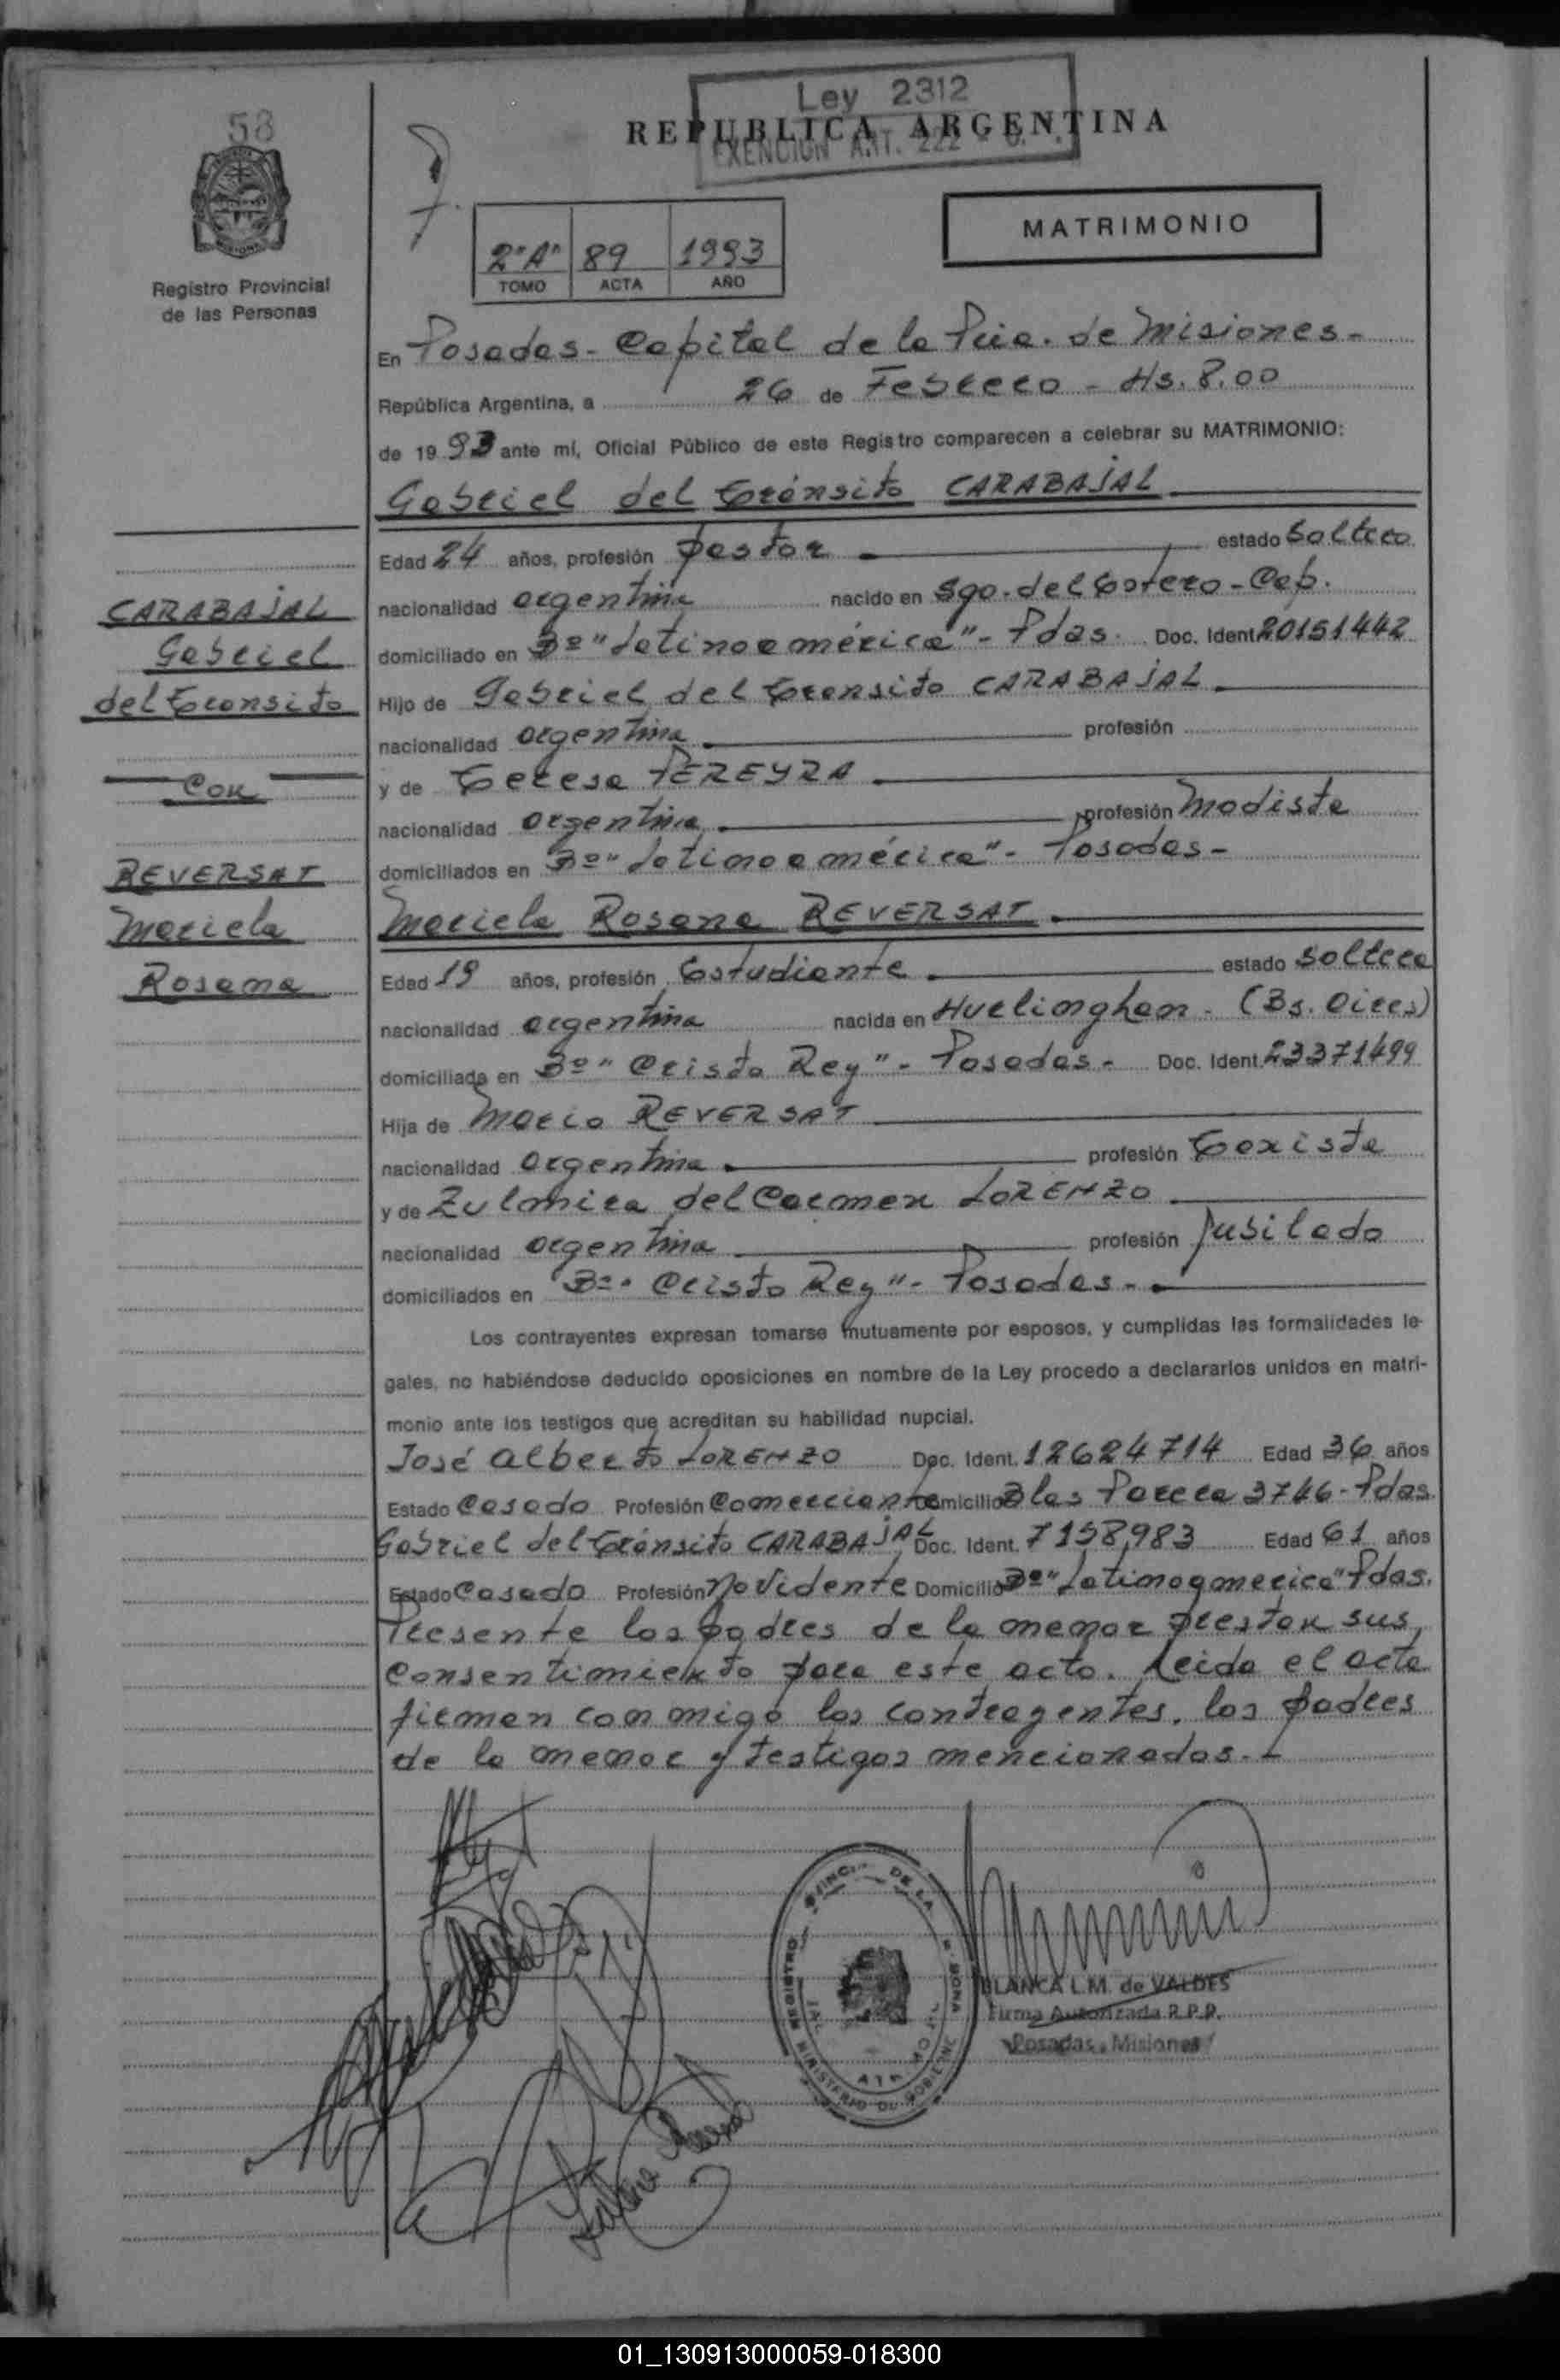 58
Ley 2312
REPUBLICA ARGENTINA
EXENCION ART. 222
MATRIMONIO
2"A" 89 1993
TOMO ACTA AÑO
Registro Provincial
de las Personas
En Posadas - Capital de la Pcia. de Misiones -
República Argentina, a 26 de Febrero - Hs. 8.00
de 1993 ante mí, Oficial Público de este Registro comparecen a celebrar su MATRIMONIO:
Gabriel del Tránsito CARABAJAL
Edad 24 años, profesión Pastor estado Soltero
nacionalidad argentina nacido en Sgo. del Estero - Cap.
domiciliado en Bº "Latinoamérica" - Pdas. Doc. Ident. 20151442
Hijo de Gabriel del Transito CARABAJAL
nacionalidad argentina profesión
y de Teresa PEREYRA
nacionalidad argentina profesión Modista
domiciliados en Bº "Latinoamérica" - Posadas -
Mariela Rosana REVERSAT
Edad 19 años, profesión Estudiante estado Soltera
nacionalidad argentina nacida en Hurlinghan - (Bs. Aires)
domiciliada en Bº "Cristo Rey" - Posadas - Doc. Ident. 23371499
Hija de Mario REVERSAT
nacionalidad argentina profesión Taxista
y de Zulmira del Carmen LORENZO
nacionalidad argentina profesión Jubilada
domiciliados en Bº "Cristo Rey" - Posadas -
Los contrayentes expresan tomarse mutuamente por esposos, y cumplidas las formalidades le-
gales, no habiéndose deducido oposiciones en nombre de la Ley procedo a declararlos unidos en matri-
monio ante los testigos que acreditan su habilidad nupcial.
José Alberto LORENZO Doc. Ident. 12624714 Edad 36 años
Estado Casado Profesión Comerciante Domicilio Blas Parera 3746 - Pdas.
Gabriel del Tránsito CARABAJAL Doc. Ident. 7158983 Edad 61 años
Estado Casado Profesión No Vidente Domicilio Bº "Latinoamerica" Pdas.
Presente los padres de la menor prestan sus
consentimiento para este acto. Leida el acta
firman con migo los contrayentes, los padres
de la menor y testigos mencionados. -
CARABAJAL
Gabriel
del Transito
Con
REVERSAT
Mariela
Rosana
REGISTRO DE LA
MINISTERIO DE GOBIERNO
BLANCA L.M. de VALDES
Firma Autorizada R.P.P.
Posadas - Misiones
01_130913000059-018300